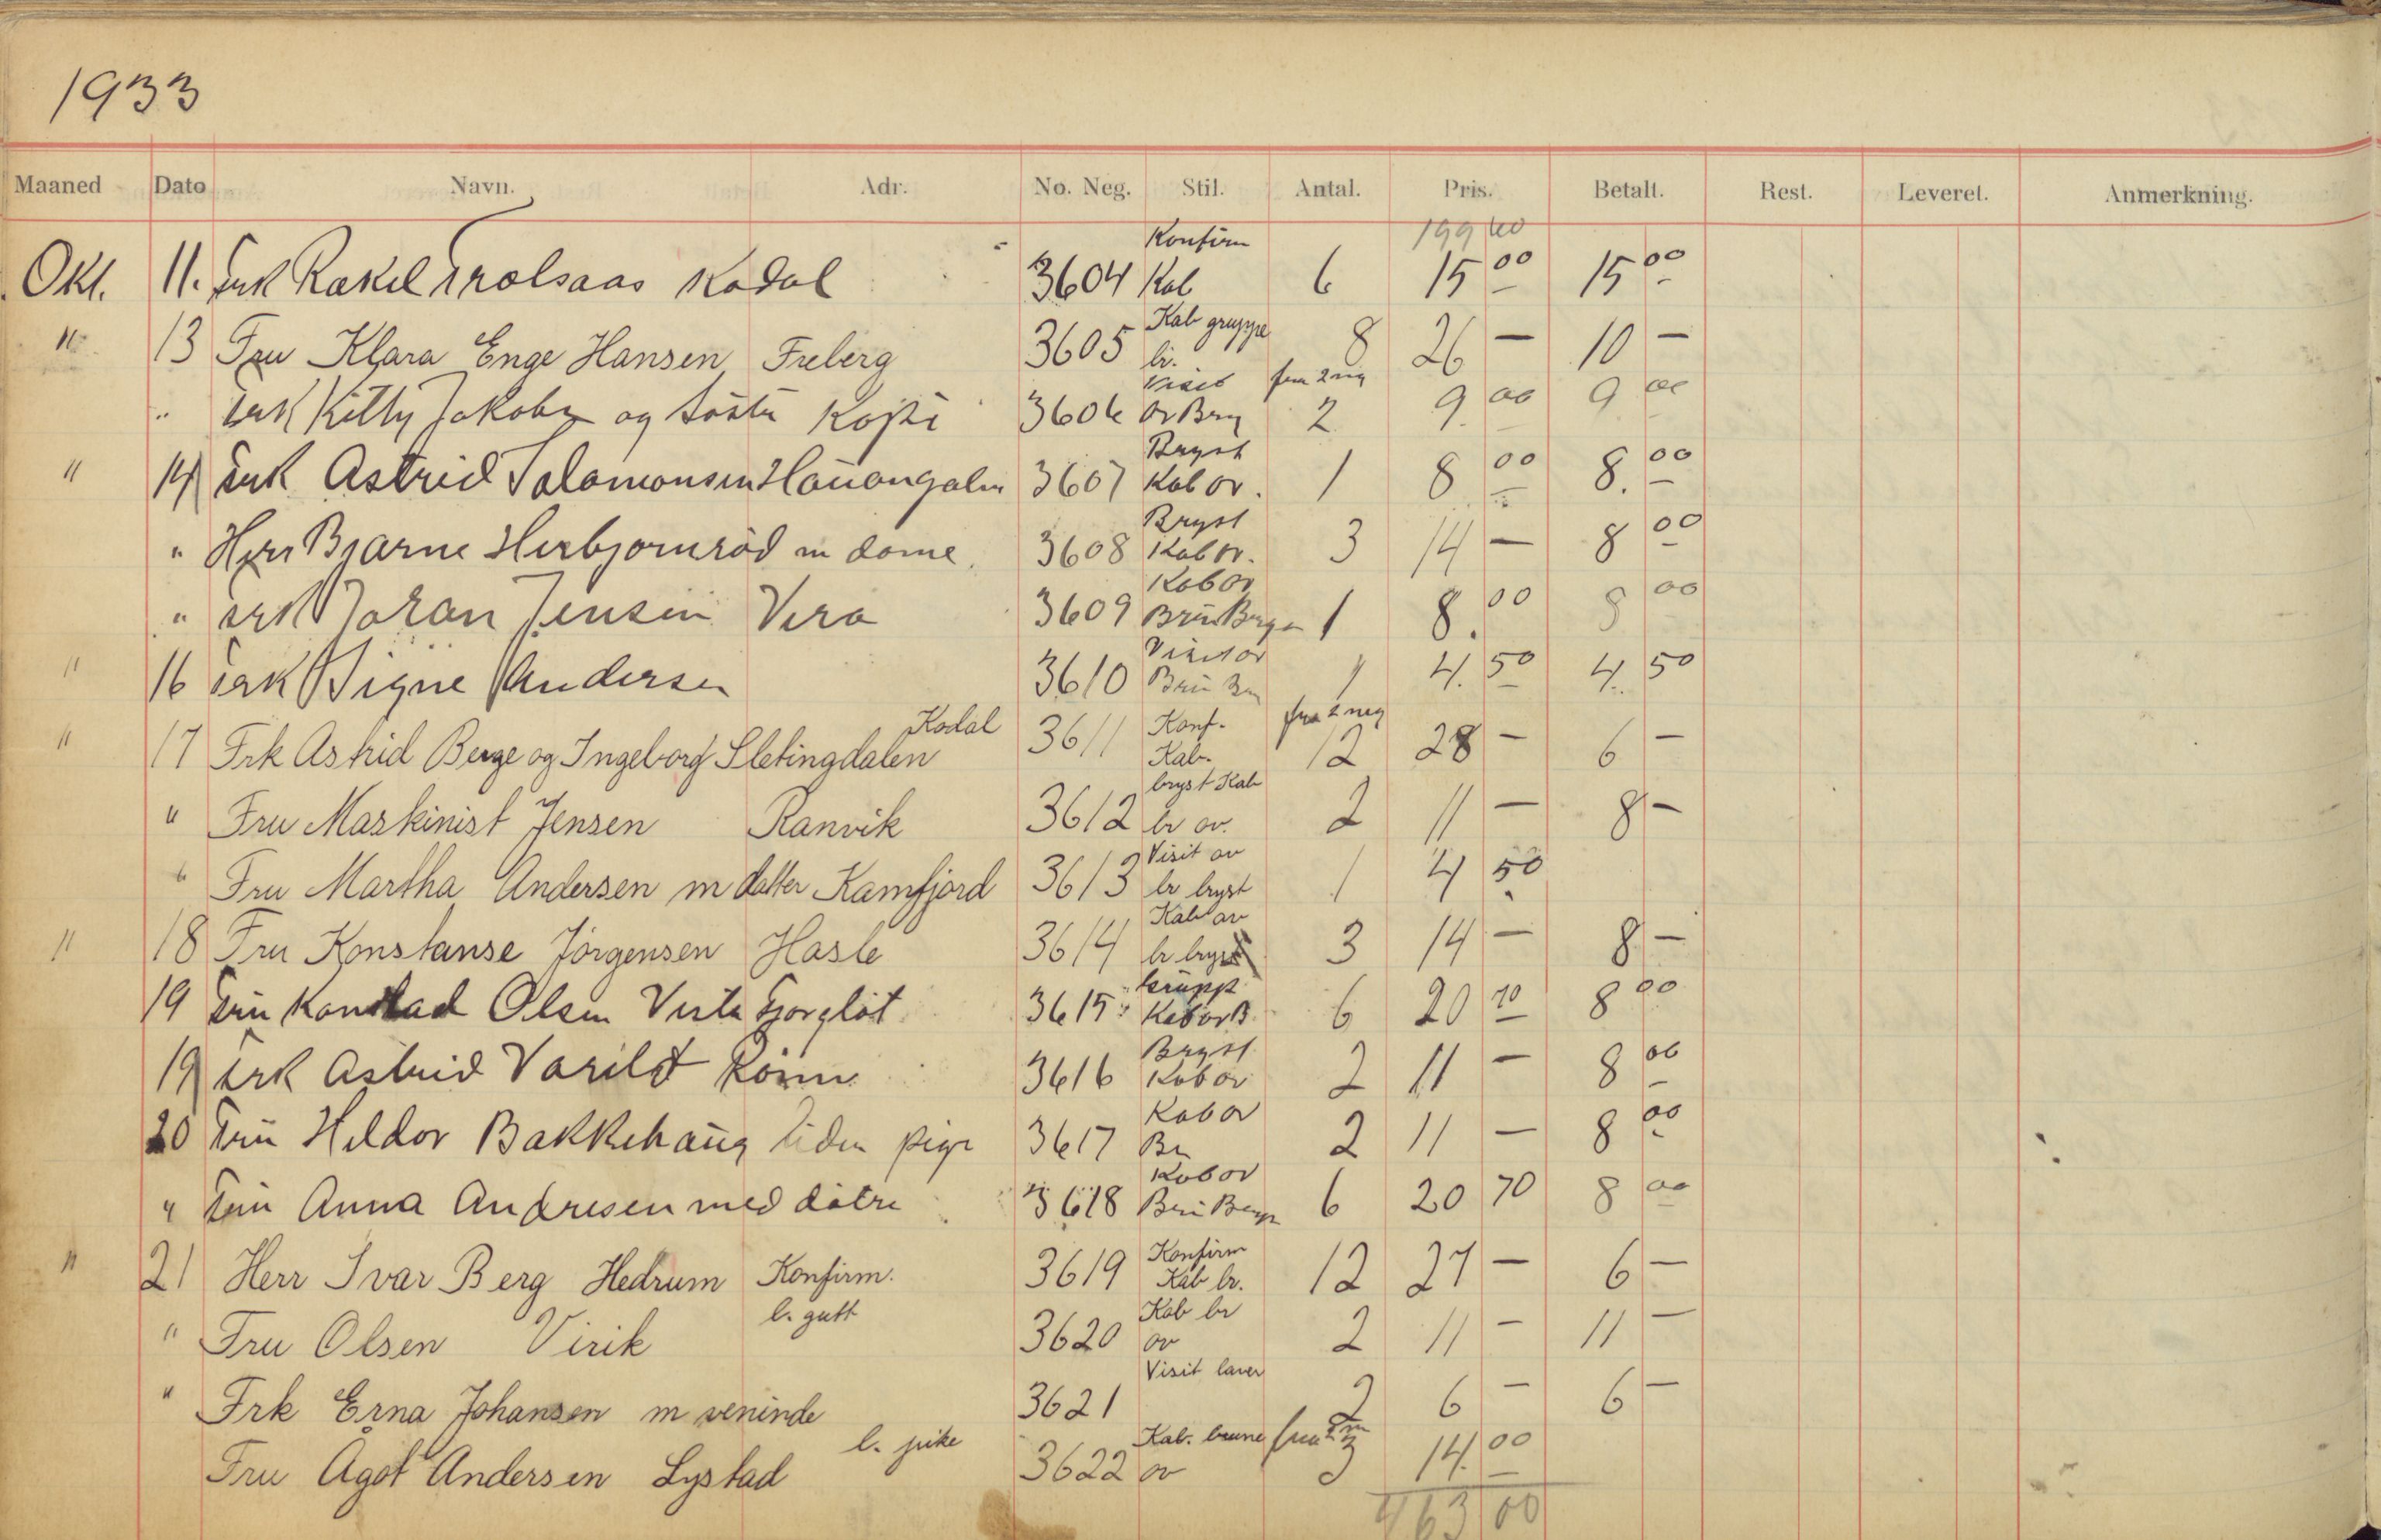 1933
Maaned Dato Navn. Adr. No. Neg. Stil. Antal. Pris. Betalt. Rest. Leveret. Anmerkning.
199 40
Okt. 11. Frk Rakel Trolsaas Kodal 3604 Konfirm Kab 6 15 00 15 00
" 13 Fru Klara Enge Hansen Freberg 3605 Kab gruppe br. 8 26 — 10 —
" Frk Kitty Jakobs og Söster Kopi 3606 Visit ov Bry fra 2 neg 2 9 00 9 00
" 14 Frk Astrid Salomonsen Hauangalen 3607 Bryst Kab ov. 1 8 00 8. 00
" Herr Bjarne Herbjornröd m dame 3608 Bryst Kab ov. 3 14 — 8 00
" Frk Joran Jensen Vera 3609 Kab ov Brün 1 8. 00 8 00
" 16 Frk Signe Andersen 3610 Visit ov Brü 1 4. 50 4. 50
" 17 Frk Astrid Berge og Ingeborg Sletingdalen Kodal 3611 Konf. Kab. fra 2 neg 12 28 — 6 —
" Fru Maskinist Jensen Ranvik 3612 bryst Kab br ov. 2 11 — 8 —
" Fru Martha Andersen m datter Kamfjord 3613 Visit ov br bryst 1 4 50
" 18 Fru Konstanse Jörgensen Hasle 3614 Kab ov br bryst 3 14 — 8 —
19 Frü Konstad Olsen Vesta 3615 Grüpp Kab ov B 6 20 70 8 00
19 Frk Astrid Varild 3616 Bryst Kab ov 2 11 — 8 00
20 Frü Heldor Bakkehaüg liden pige 3617 Kab ov Br 2 11 — 8 00
" Frü Anna Andresen med datre 3618 Kab ov Brü 6 20 70 8 00
" 21 Herr Ivar Berg Hedrum Konfirm. 3619 Konfirm Kab br. 12 27 — 6 —
" Fru Olsen Virik l. gutt 3620 Kab br ov 2 11 — 11 —
" Frk Erna Johansen m veninde 3621 Visit laver 2 6 — 6 —
Fru Ågot Andersen Lystad l. pike 3622 Kab. brune ov fra 2 n 3 14. 00
463 00